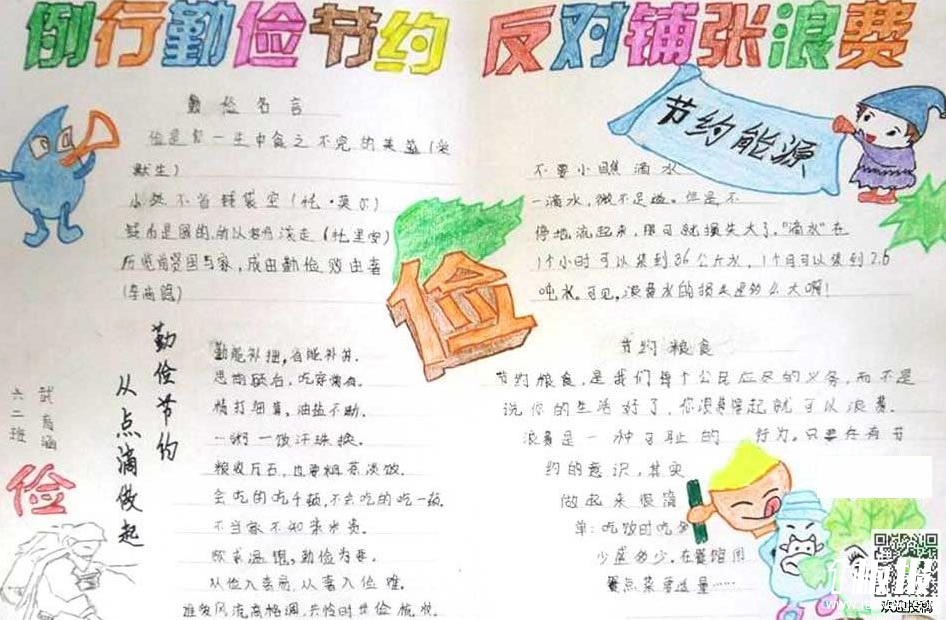 例行勤俭节约 反对铺张浪费
勤俭名言
俭是你一生中食之不完的美筵(爱
默生)
小处不省钱袋空(托·莫尔)
钱币是圆的,所以容易滚走(托里安)
历览前贤国与家,成由勤俭败由奢
(李商隐)
俭
勤俭节约
从点滴做起
武育涵
六二班
俭
勤能补拙,省能补贫。
思前顾后,吃穿常有。
精打细算,油盐不断。
一粥一饭汗珠换。
粮收万石,也要粗茶淡饭。
会吃的吃千顿,不会吃的吃一顿。
不当家不知柴米贵。
欲求温饱,勤俭为要。
从俭入奢易,从奢入俭难。
节约能源
不要小瞧滴水
一滴水,微不足道。但是不
停地流起来,那可就损失大了。"滴水"在
1个小时可以集到3.6公斤水,1个月可以集到2.6
吨水。可见,浪费水的损失是多么大啊!
节约粮食
节约粮食,是我们每个公民应尽的义务,而不是
说你的生活好了,你浪费得起就可以浪费。
浪费是一种可耻的行为。只要存有节
约的意识,其实
做起来很简
单:吃饭时吃多
少盛多少。在餐馆用
餐点菜要适量……
欢迎投稿